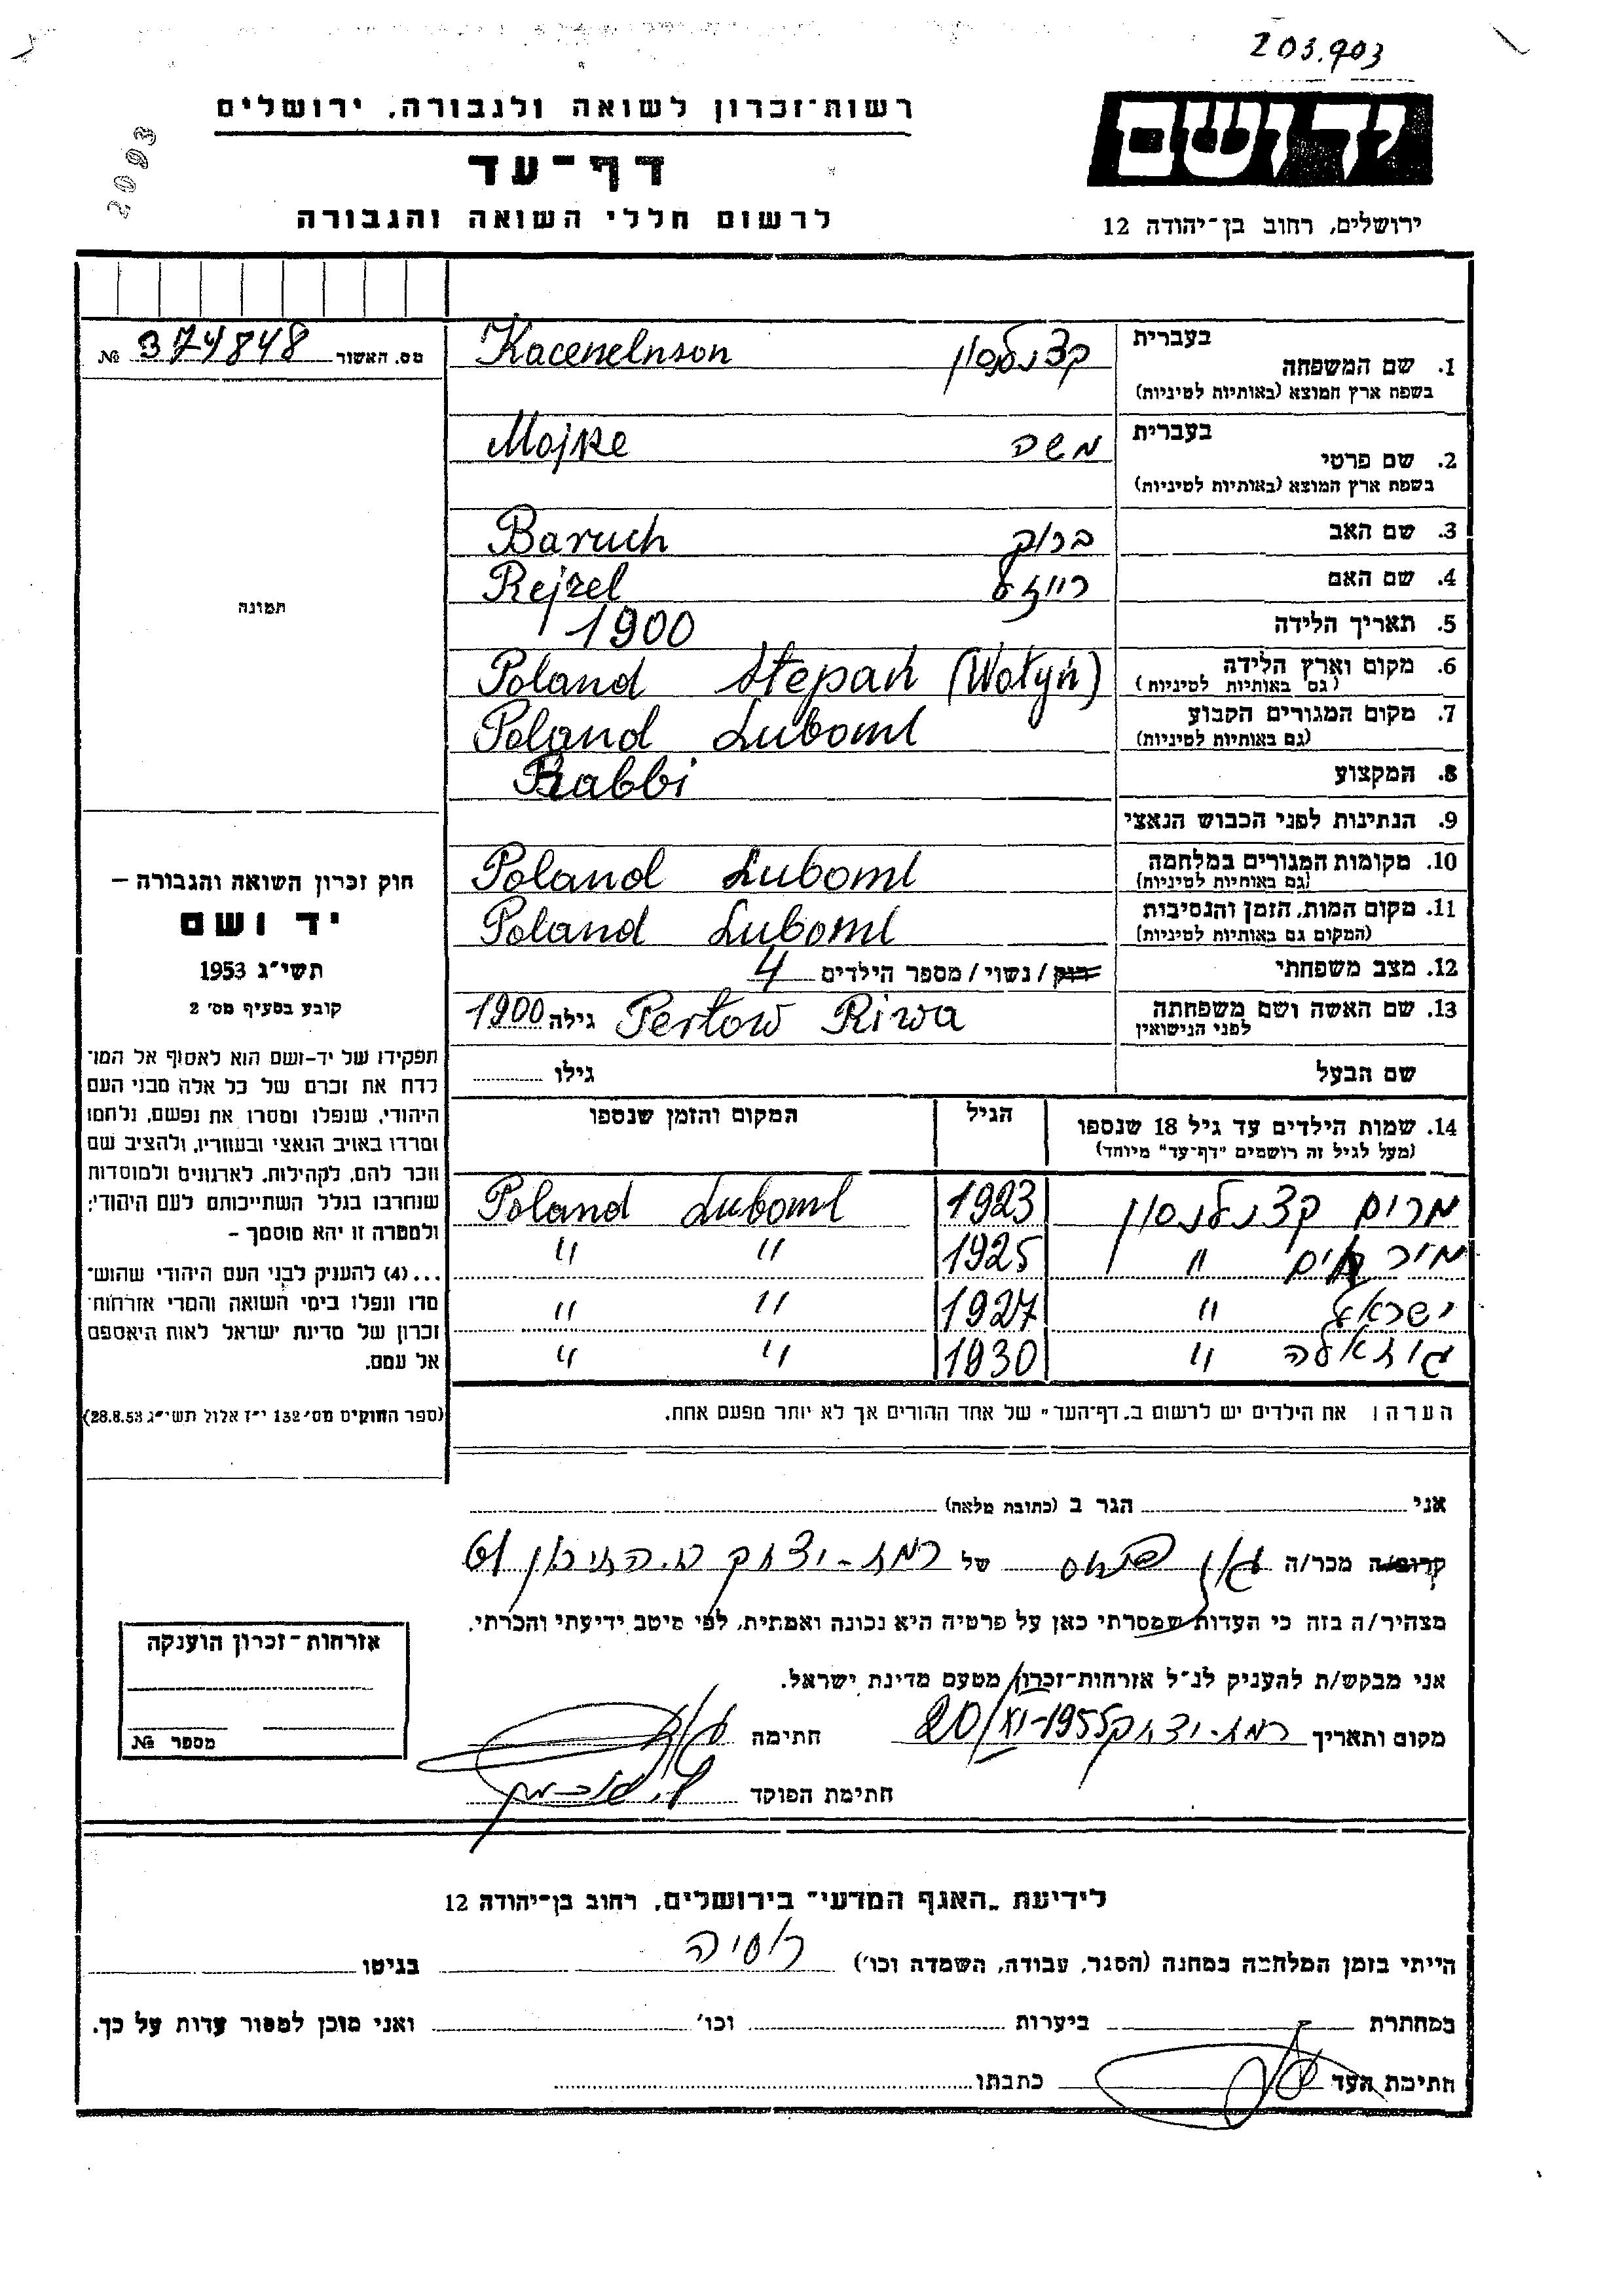 203.903
2093
יד ושם
ירושלים, רחוב בן-יהודה 12
רשות-זכרון לשואה ולגבורה, ירושלים
דף-עד
לרשום חללי השואה והגבורה
מס. האשור 374848 №
תמונה
חוק זכרון השואה והגבורה –
יד ושם
תשי"ג 1953
קובע בסעיף מס' 2
תפקידו של יד-ושם הוא לאסוף אל המו־
לדת את זכרם של כל אלה מבני העם
היהודי, שנפלו ומסרו את נפשם, נלחמו
ומרדו באויב הנאצי ובעוזריו, ולהציב שם
וזכר להם, לקהילות, לארגונים ולמוסדות
שנחרבו בגלל השתייכותם לעם היהודי;
ולמטרה זו יהא מוסמך –
...(4) להעניק לבני העם היהודי שהוש־
מדו ונפלו בימי השואה והמרי אזרחות־
זכרון של מדינת ישראל לאות היאספם
אל עמם.
(ספר החוקים מס' 132 י"ז אלול תשי"ג 28.8.53)
בעברית
1. שם המשפחה קצנלנסון Kacenelnson
בשפת ארץ המוצא (באותיות לטיניות)
בעברית
2. שם פרטי משה Mojże
בשפת ארץ המוצא (באותיות לטיניות)
3. שם האב ברוך Baruch
4. שם האם רייזל Rejzel
5. תאריך הלידה 1900
6. מקום וארץ הלידה Poland Stepań (Wołyń)
(גם באותיות לטיניות)
7. מקום המגורים הקבוע Poland Luboml
(גם באותיות לטיניות)
8. המקצוע Rabbi
9. הנתינות לפני הכבוש הנאצי
10. מקומות המגורים במלחמה Poland Luboml
(גם באותיות לטיניות)
11. מקום המות, הזמן והנסיבות Poland Luboml
(המקום גם באותיות לטיניות)
12. מצב משפחתי רווק / נשוי / מספר הילדים 4
13. שם האשה ושם משפחתה Perłow Riwa גילה 1900
לפני הנישואין
שם הבעל גילו
14. שמות הילדים עד גיל 18 שנספו הגיל המקום והזמן שנספו
(מעל לגיל זה רושמים "דף-עד" מיוחד)
מרים קצנלנסון 1923 Poland Luboml
" 1925 " "
ישראל " 1927 " "
" 1930 " "
הערה: את הילדים יש לרשום ב„דף-העד" של אחד ההורים אך לא יותר מפעם אחת.
אני הגר ב (כתובת מלאה)
קרוב/ה מכר/ה של רמת-יצחק 61
מצהיר/ה בזה כי העדות שמסרתי כאן על פרטיה היא נכונה ואמתית, לפי מיטב ידיעתי והכרתי.
אני מבקש/ת להעניק לנ"ל אזרחות-זכרון מטעם מדינת ישראל.
מקום ותאריך רמת-יצחק 20/XI-1955 חתימה
חתימת הפוקד
אזרחות-זכרון הוענקה
מספר №
לידיעת „האגף המדעי" בירושלים, רחוב בן-יהודה 12
הייתי בזמן המלחמה במחנה (הסגר, עבודה, השמדה וכו') רוסיה בגיטו
במחתרת ביערות וכו' ואני מוכן למסור עדות על כך.
חתימת העד כתבתו